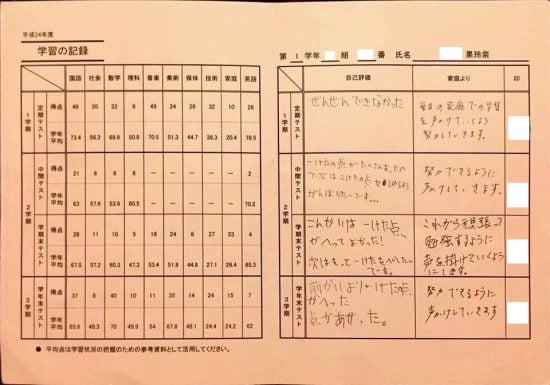 平成24年度
学習の記録
第 1 学年 組 番 氏名 果玲奈
国語 社会 数学 理科 音楽 美術 保体 技術 家庭 英語
自己評価 家庭より 印
1学期 定期テスト
得点 49 20 22 9 49 24 26 32 10 26
学年平均 73.4 56.3 68.9 50.8 70.5 51.3 44.7 36.3 20.4 78.5
ぜんぜんできなかった
毎日の家庭での学習
を声かけていくよう
努力していきます。
2学期 中間テスト
得点 21 8 8 8 － － － － － 2
学年平均 63 57.6 53.9 60.5 － － － － － 70.2
一けたの点がたくさんあったの
がんばりたいです…
努力できるように
声かけしていきます。
学期末テスト
得点 28 11 10 5 18 24 8 27 23 4
学年平均 67.5 57.2 60.3 47.3 53.4 51.8 44.8 27.1 26.4 65.3
こんかいは一けた点
がへってよかった！
次はもっと一けたをへらしたい
です。
これから頑張って
勉強するように
声を掛けていくように
します。
3学期 学年末テスト
得点 37 8 40 10 11 35 14 24 15 7
学年平均 65.6 48.3 70 49.9 54 67.8 48.1 24.4 24.2 62
前かいより一けた点
がへった
点があがった。
努力できるように
声かけしていきます
● 平均点は学習状況の把握のための参考資料として活用してください。